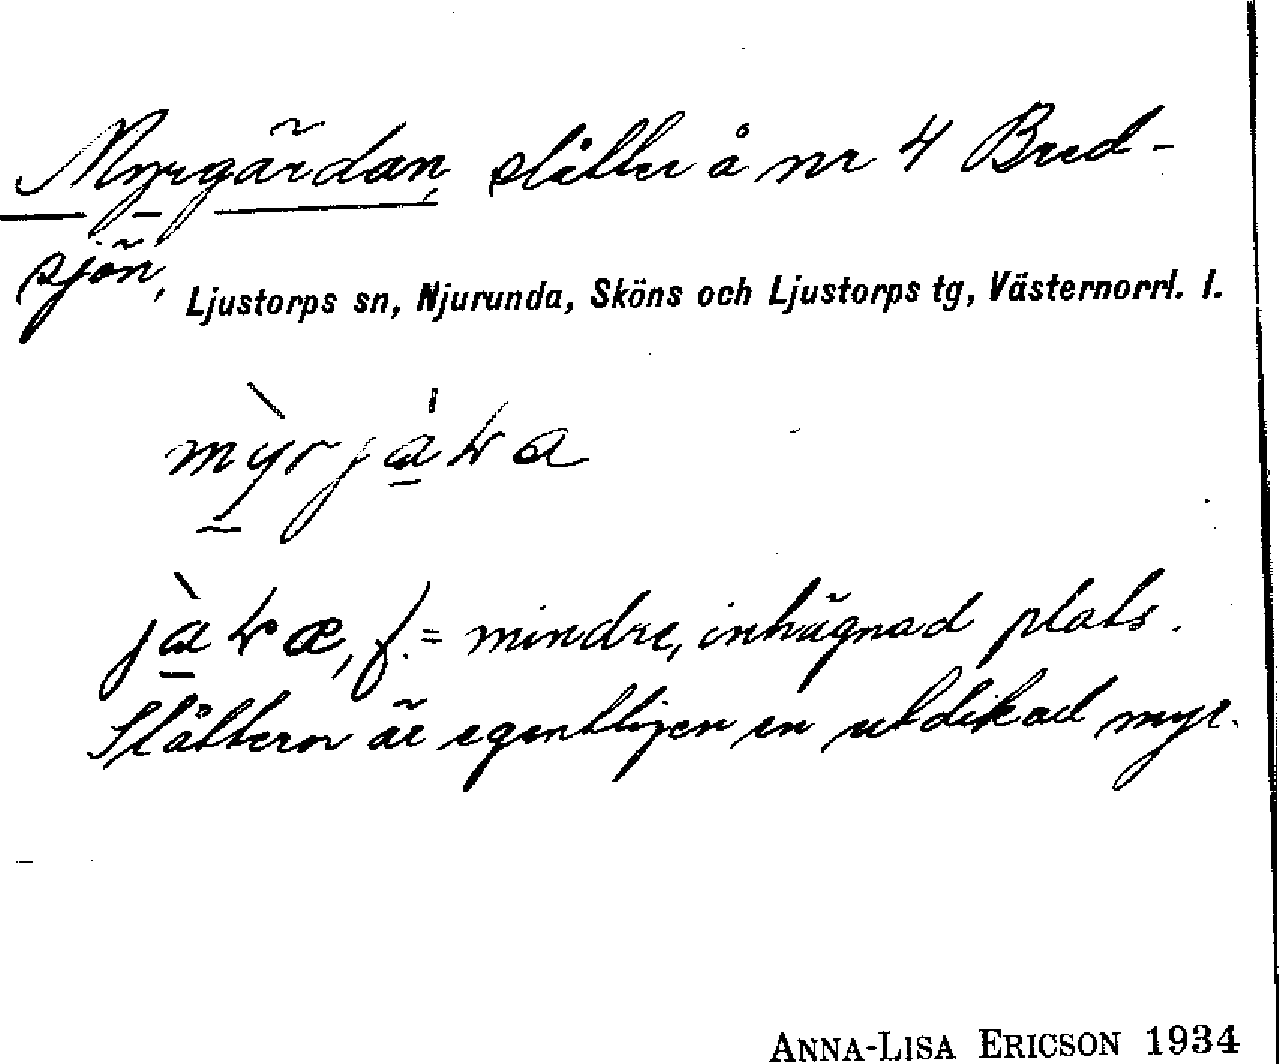 Myrgärdan, slåtter å nr 4 Bred-
sjön,
Ljustorps sn, Njurunda, Sköns och Ljustorps tg, Västernorrl. l.
f. = mindre, inhägnad plats.
Slåttern är egentligen en utdikad myr.
ANNA-LISA ERICSON 1934